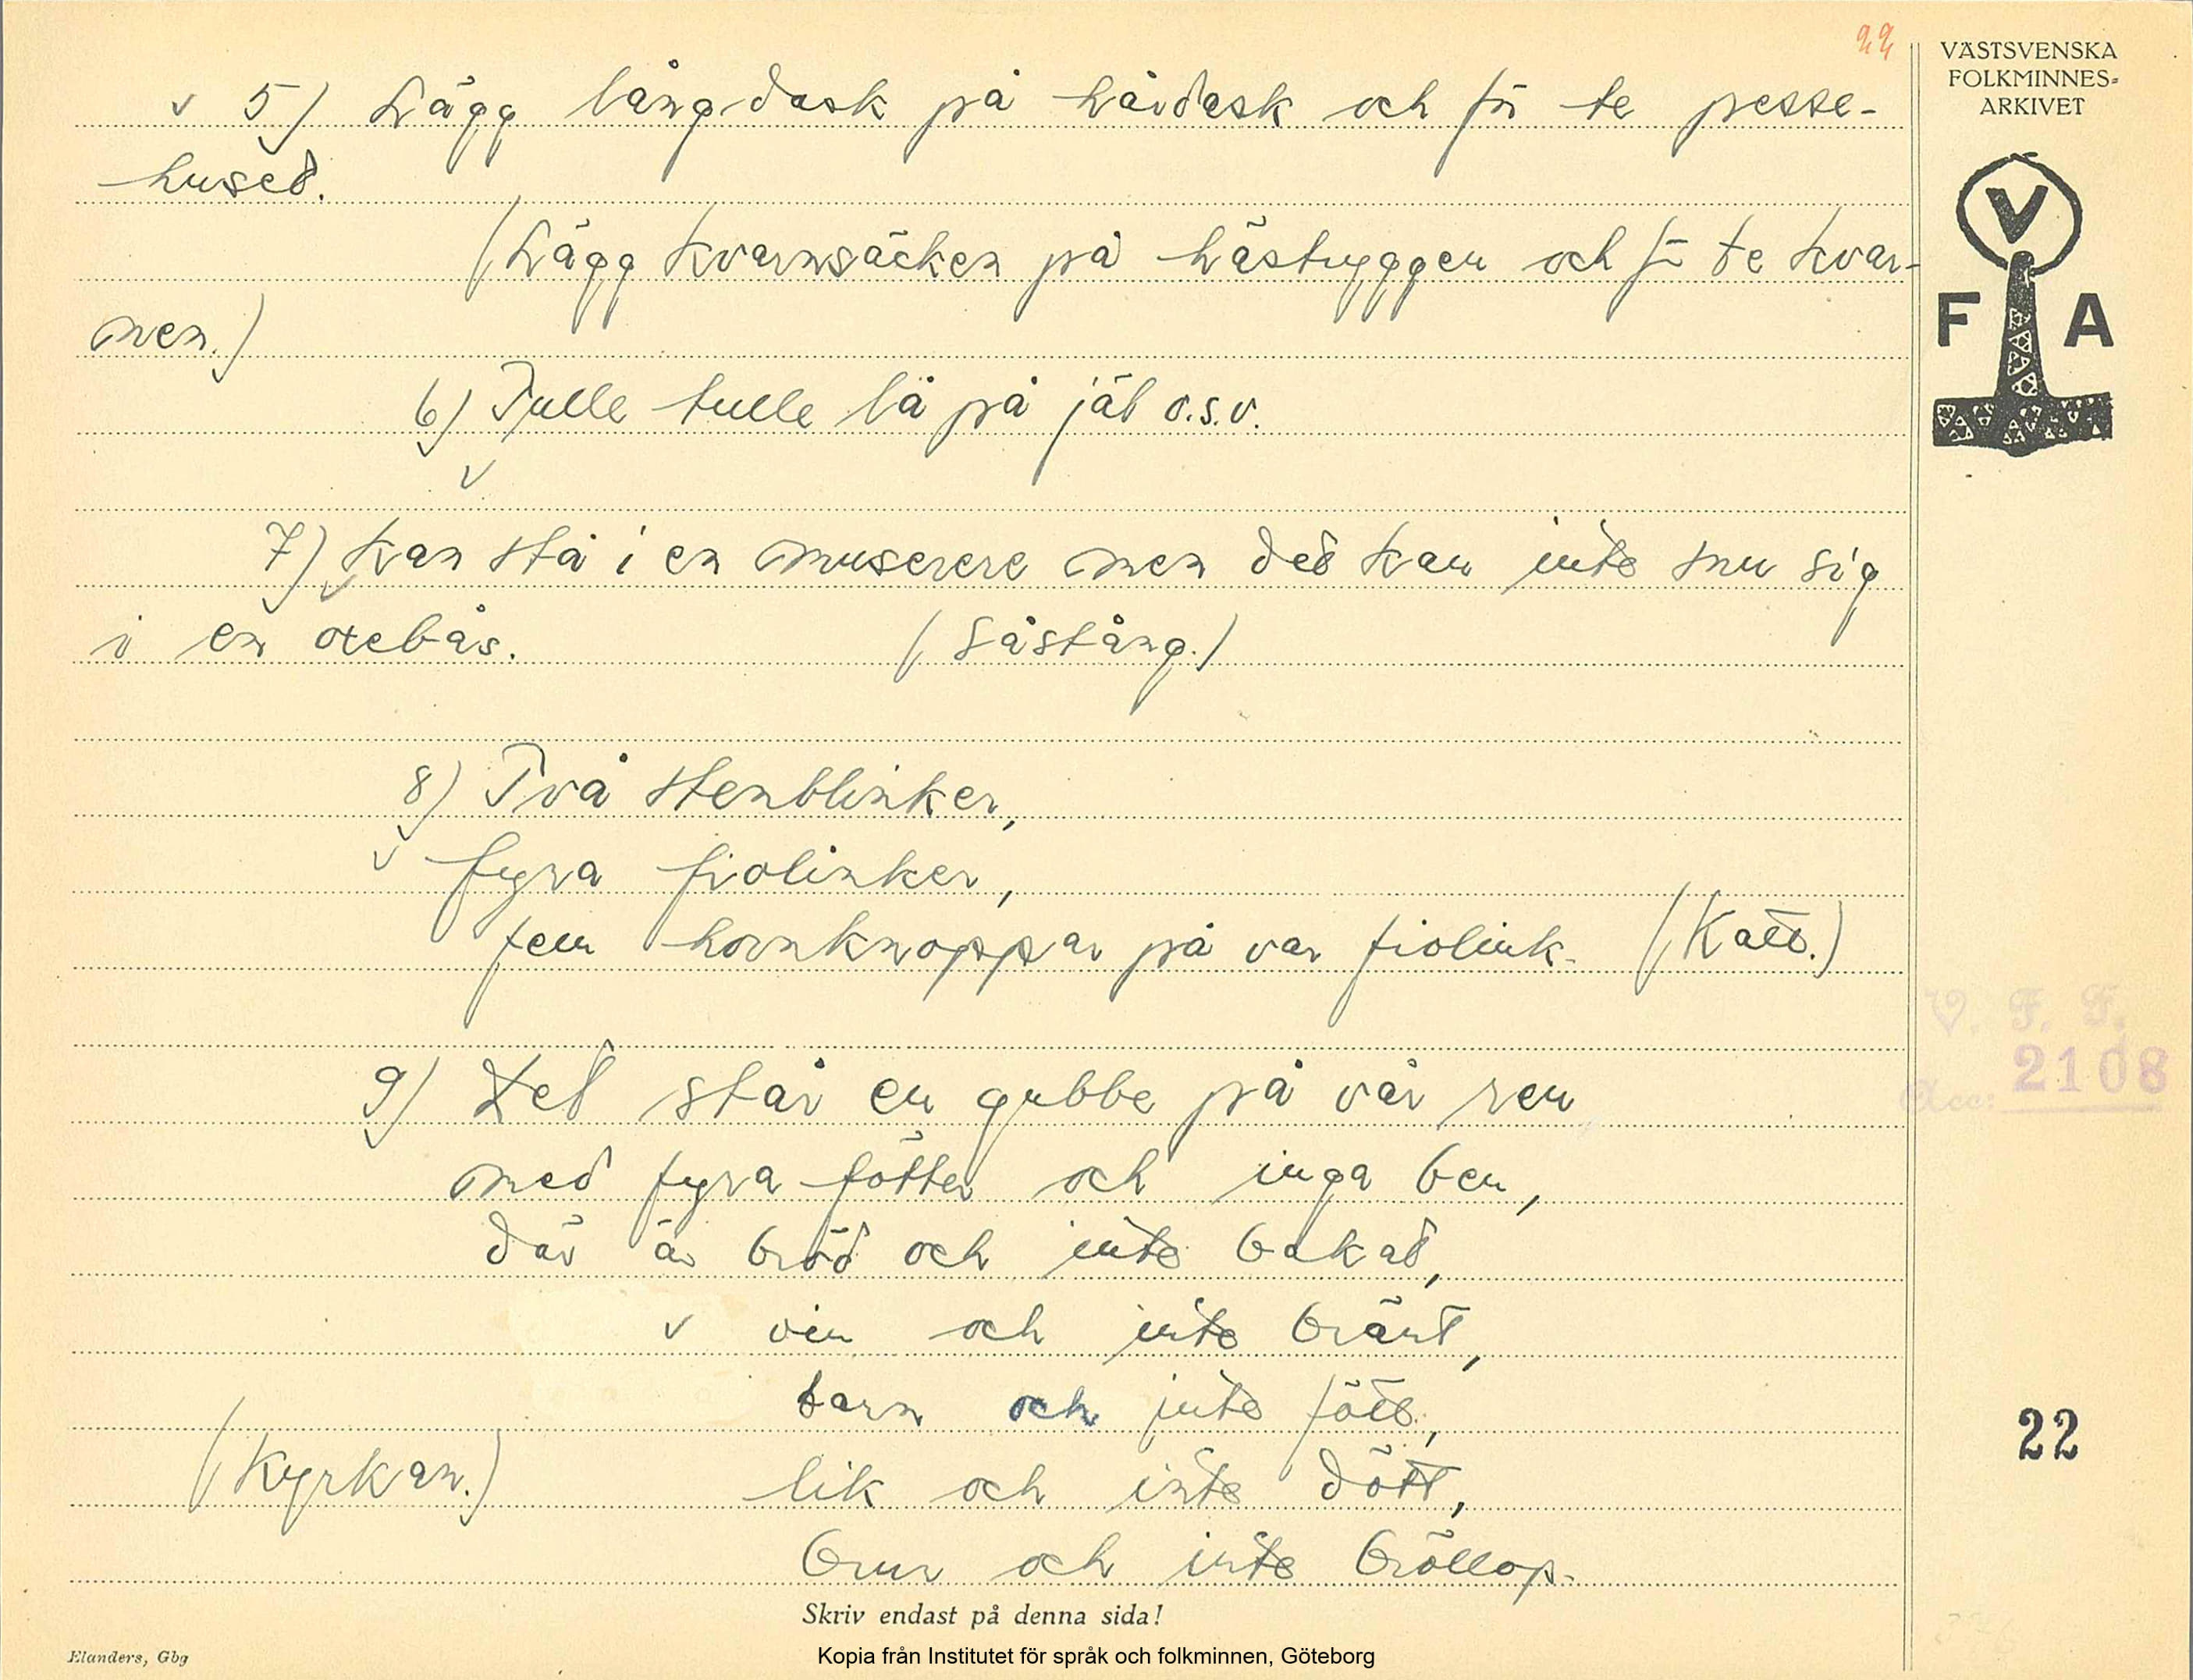 22
VÄSTSVENSKA
FOLKMINNES=
ARKIVET
V
F A
5) Lägg långdask på hårdask och fö te pesse-
hused.
(Lägg kvarnsäcken på hästryggen och fö te kvar-
nen.)
6) Tulle tulle lå på jäl o.s.v.
7) Kan stå i en muserere men det kan inte snu sig
i en oxebås. (Såstång.)
8) Två stenblinker,
fyra fiolinker,
fem hornknoppar på var fiolink. (Katt.)
9) Det står en gubbe på vår ren
med fyra fötter och inga ben,
där är bröd och inte bakat,
vin och inte bränt,
barn och inte fött,
(Kyrkan.) lik och inte dött,
brur och inte bröllop.
V. F. F.
Acc: 2108
22
Skriv endast på denna sida!
Elanders, Gbg
Kopia från Institutet för språk och folkminnen, Göteborg